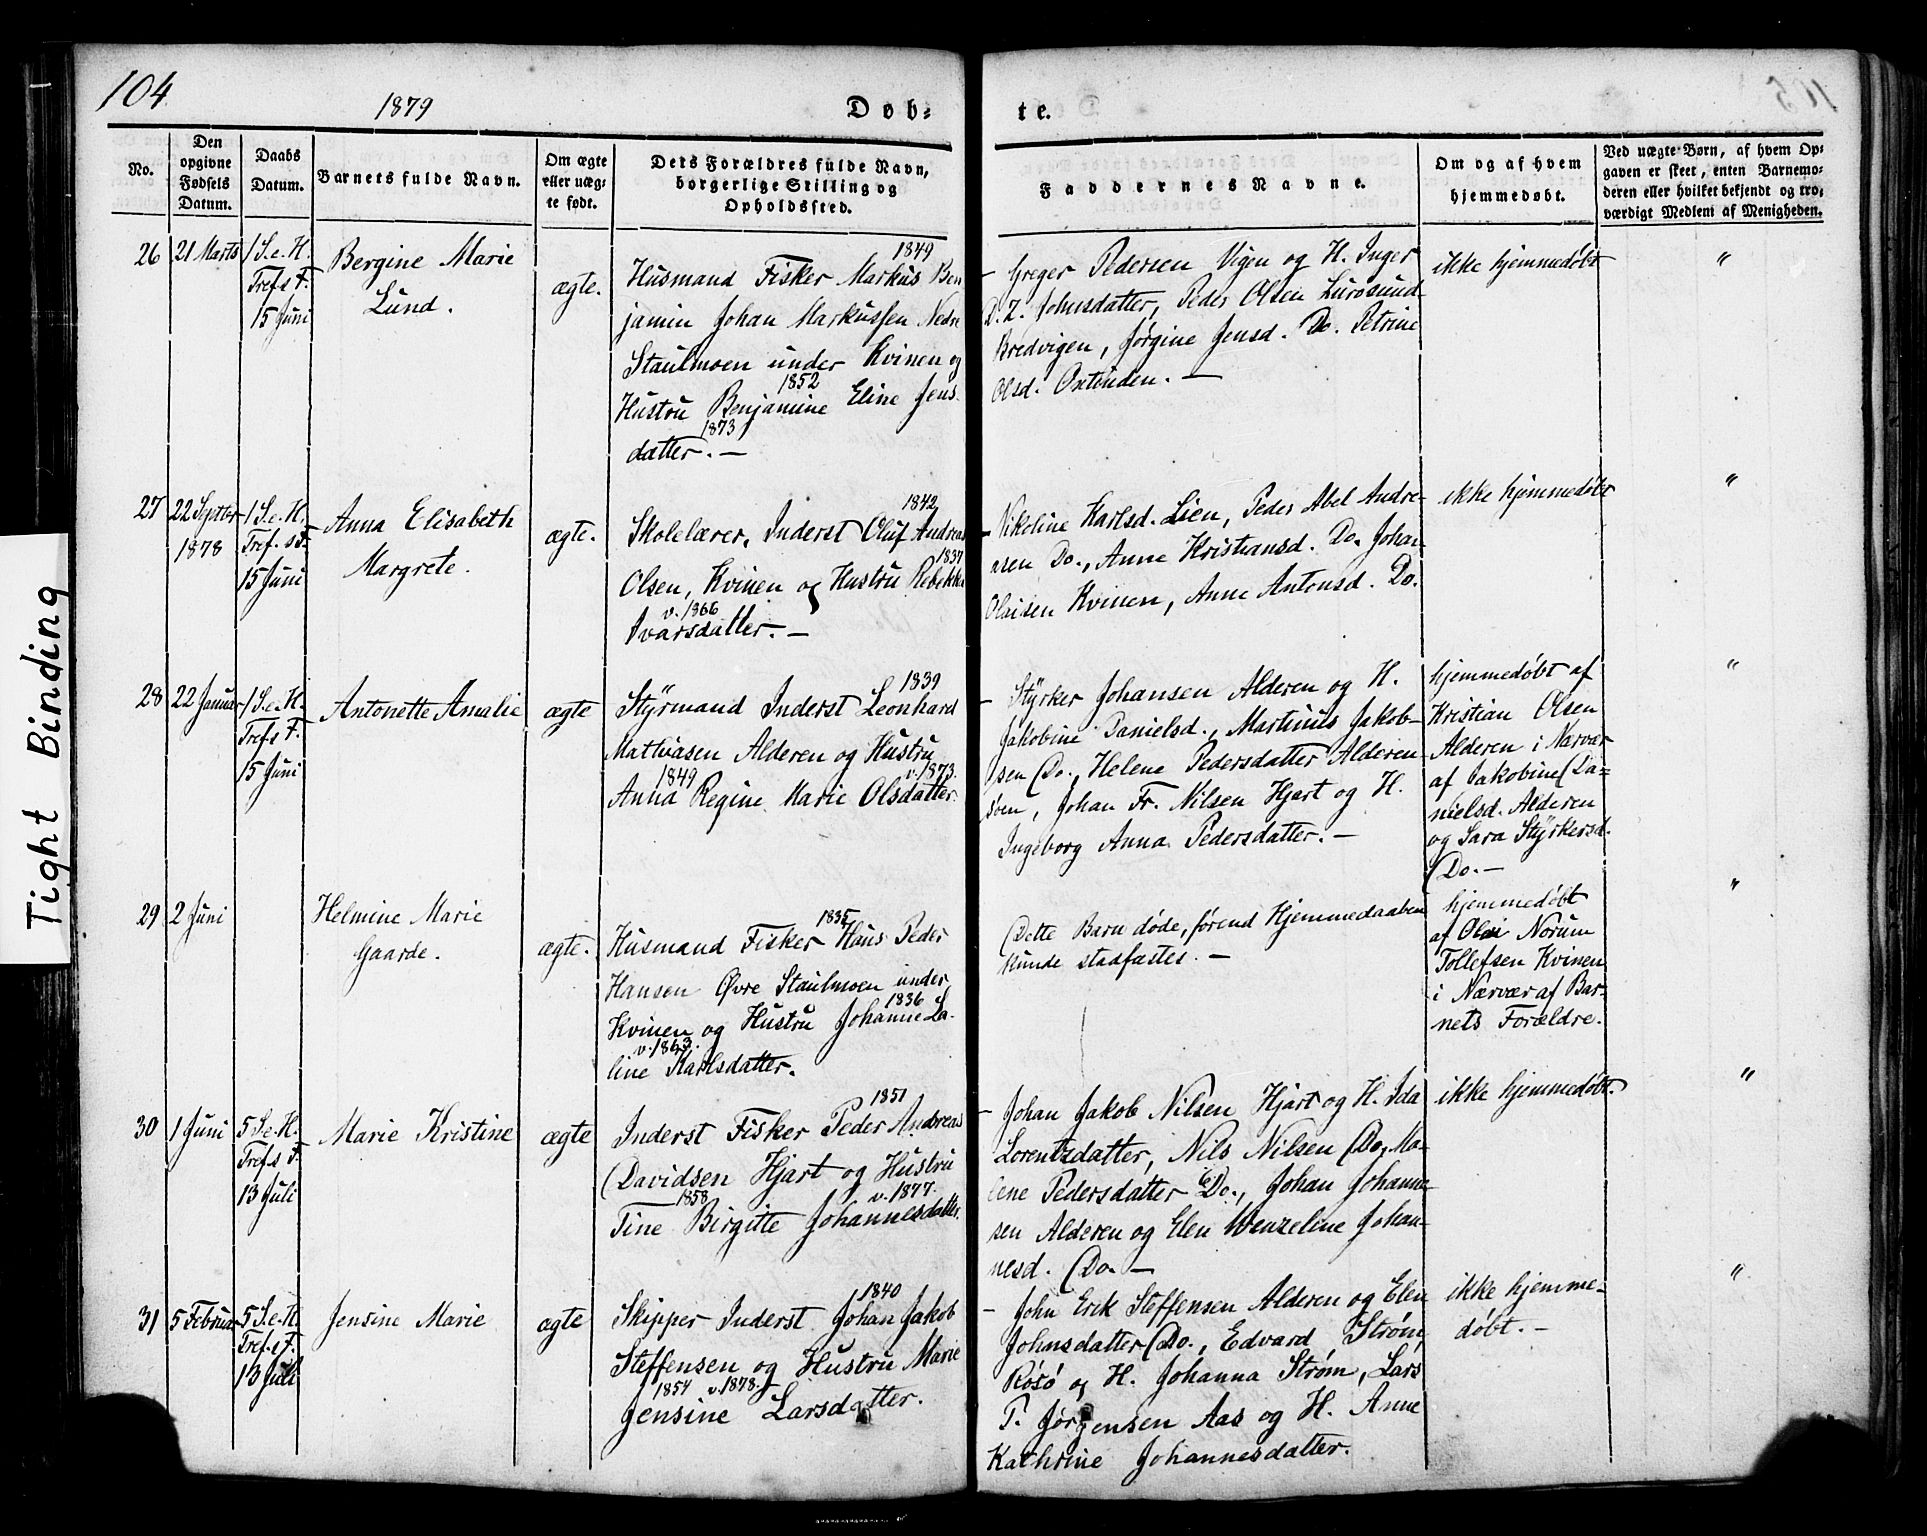 104
1879
Døb-
te.
No.
Den
opgivne
Fødsels
Datum.
Daabs
Datum.
Barnets fulde Navn.
Om ægte
eller uæg-
te født.
Dets Forældres fulde Navn,
borgerlige Stilling og
Opholdssted.
Faddernes Navne.
Om og af hvem
hjemmedøbt.
Ved uægte Børn, af hvem Op-
gaven er skeet, enten Barnemo-
deren eller hvilket bekjendt og tro-
værdigt Medlem af Menigheden.
Tight Binding
26
21 Marts
1 S. e. H.
Trefs F.
15 Juni
Bergine Marie
Lund.
ægte.
1849
Husmand Fisker Markus Ben
jamin Johan Markussen Nedre
Staulmoen under Kvinen og
1852
Hustru Benjamine Eline Jens-
1873
datter. —
— Greger Pedersen Vigen og H. Inger
D. Z. Johnsdatter, Peder Olsen Lurøsund
Bredvigen, Jørgine Jensd. Do. Petrine
Olsd. Oxtinden. —
ikke hjemmedøbt
"
27
22 Septbr
1878
1 S. e. H.
Tref. s F.
15 Juni
Anna Elisabeth
Margrete.
ægte.
1842
Skolelærer, Inderst Oluf Andreas
1837
Olsen, Kvinen og Hustru Rebekka
v. 1866
Ivarsdatter. —
— Nikoline Karlsd. Lien, Peder Abel Andre-
asen Do., Anne Kristiansd. Do. Johan
Olaisen Kvinen, Anne Antonsd. Do.
ikke hjemmedøbt
"
28
22 Januar
1 S. e. H.
Trefs F.
15 Juni
Antonette Amalie
ægte
1839
Styrmand Inderst Leonhard
Mathiasen Alderen og Hustru
1849 v. 1873.
Anna Regine Marie Olsdatter.
— Styrker Johansen Alderen og H.
Jakobine Danielsd., Martinus Jakob-
sen Do., Helene Pedersdatter Alderen
søen, Johan Fr. Nilsen Hjart og H.
Ingeborg Anna Pedersdatter. —
hjemmedøbt af
Kristian Olsen
Alderen i Nærvær
af Jakobine Da=
nielsd. Alderen
og Sara Styrkersd.
Do. —
"
29
2 Juni
Helmine Marie
Gaarde.
ægte.
1835
Husmand Fisker Hans Peder
Hansen Øvre Staulmoen under
1836
Kvinen og Hustru Johanne La-
v. 1863.
line Karlsdatter.
Dette Barn døde, førend Hjemmedaaben
kunde stadfæstes. —
hjemmedøbt
af Olai Norum
Tollefsen Kvinen
i Nærvær af Bar-
nets Forældre.
"
30
1 Juni
5 S. e. H.
Trefs F.
13 Juli
Marie Kristine
ægte
1851
Inderst Fisker Peder Andreas
Davidsen Hjart og Hustru
1858 v. 1877.
Tine Birgitte Johannesdatter.
— Johan Jakob Nilsen Hjart og H. Ida
Lorentzdatter, Nils Nilsen Do, Ma-
lene Pedersdatter Do., Johan Johanne-
sen Alderen og Elen Wenzeline Johan-
nesd. Do. —
ikke hjemmedøbt.
"
31
5 Februar
5 S. e. H.
Tref. s F.
13 Juli
Jensine Marie
ægte
1840
Skipper Inderst Johan Jakob
Steffensen og Hustru Marie
1854 v. 1878.
Jensine Larsdatter.
— John Erik Steffensen Alderen og Elen
Johnsdatter Do., Edvard Strøm,
Røsø og H. Johanna Strøm, Lars
T. Jørgensen Aas og H. Anne
Kathrine Johannesdatter.
ikke hjemme-
døbt. —
"